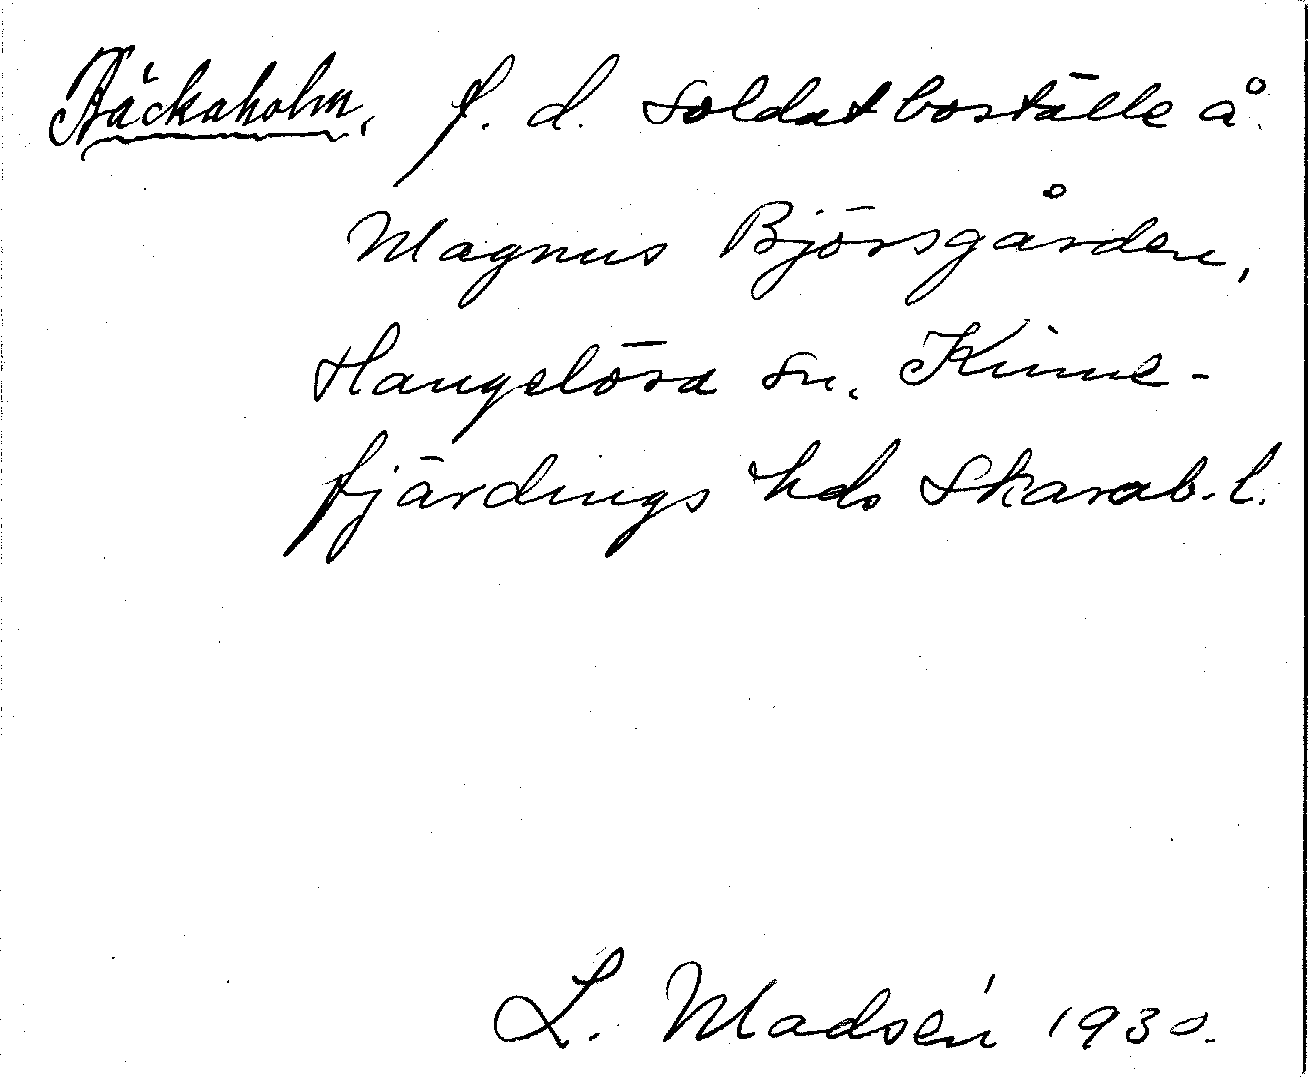 Bäckaholm, f. d. soldatboställe å
Magnus Björsgården,
Hangelösa sn, Kinne-
fjärdings hds Skarab. l.
L. Madsén 1930.